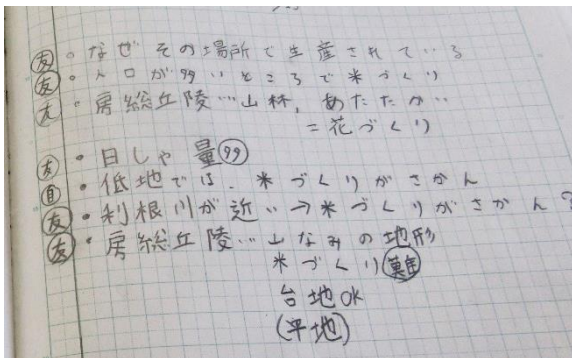 友・なぜその場所で生産されている
友・人口が多いところで米づくり
友・房総丘陵…山林,あたたか…
=花づくり
友・日しゃ量多
自・低地では、米づくりがさかん
友・利根川が近い→米づくりがさかん?
友・房総丘陵…山なみの地形
米づくり難
台地OK
(平地)